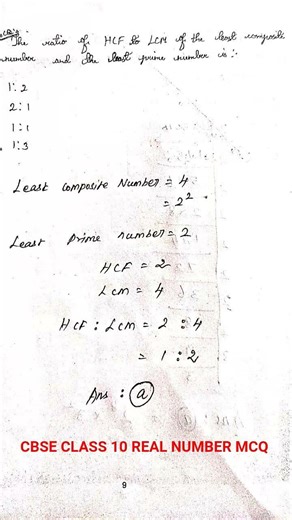 The ratio of HCF to LCM of the least composite
number and the least prime number is :-
1:2
2:1
1:1
1:3
Least Composite Number = 4
= 2²
Least Prime number = 2
HCF = 2
Lcm = 4
HCF : Lcm = 2 : 4
= 1 : 2
Ans : (a)
CBSE CLASS 10 REAL NUMBER MCQ
9